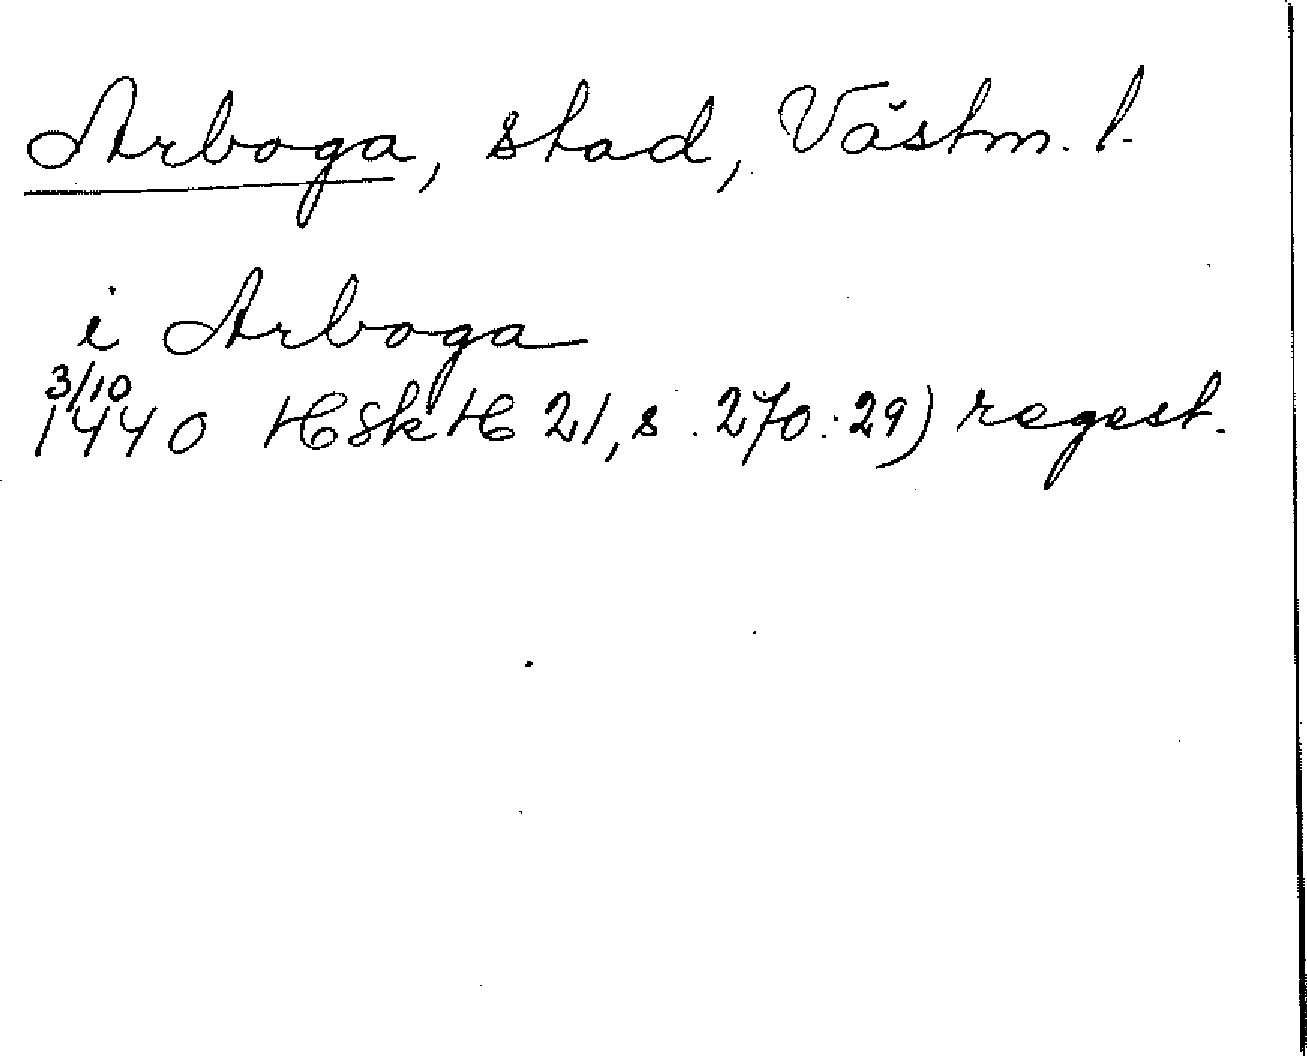 Arboga, stad, Västm. l.
i Arboga
3/10
1440 HSkH 21, s. 270: 29) regest.